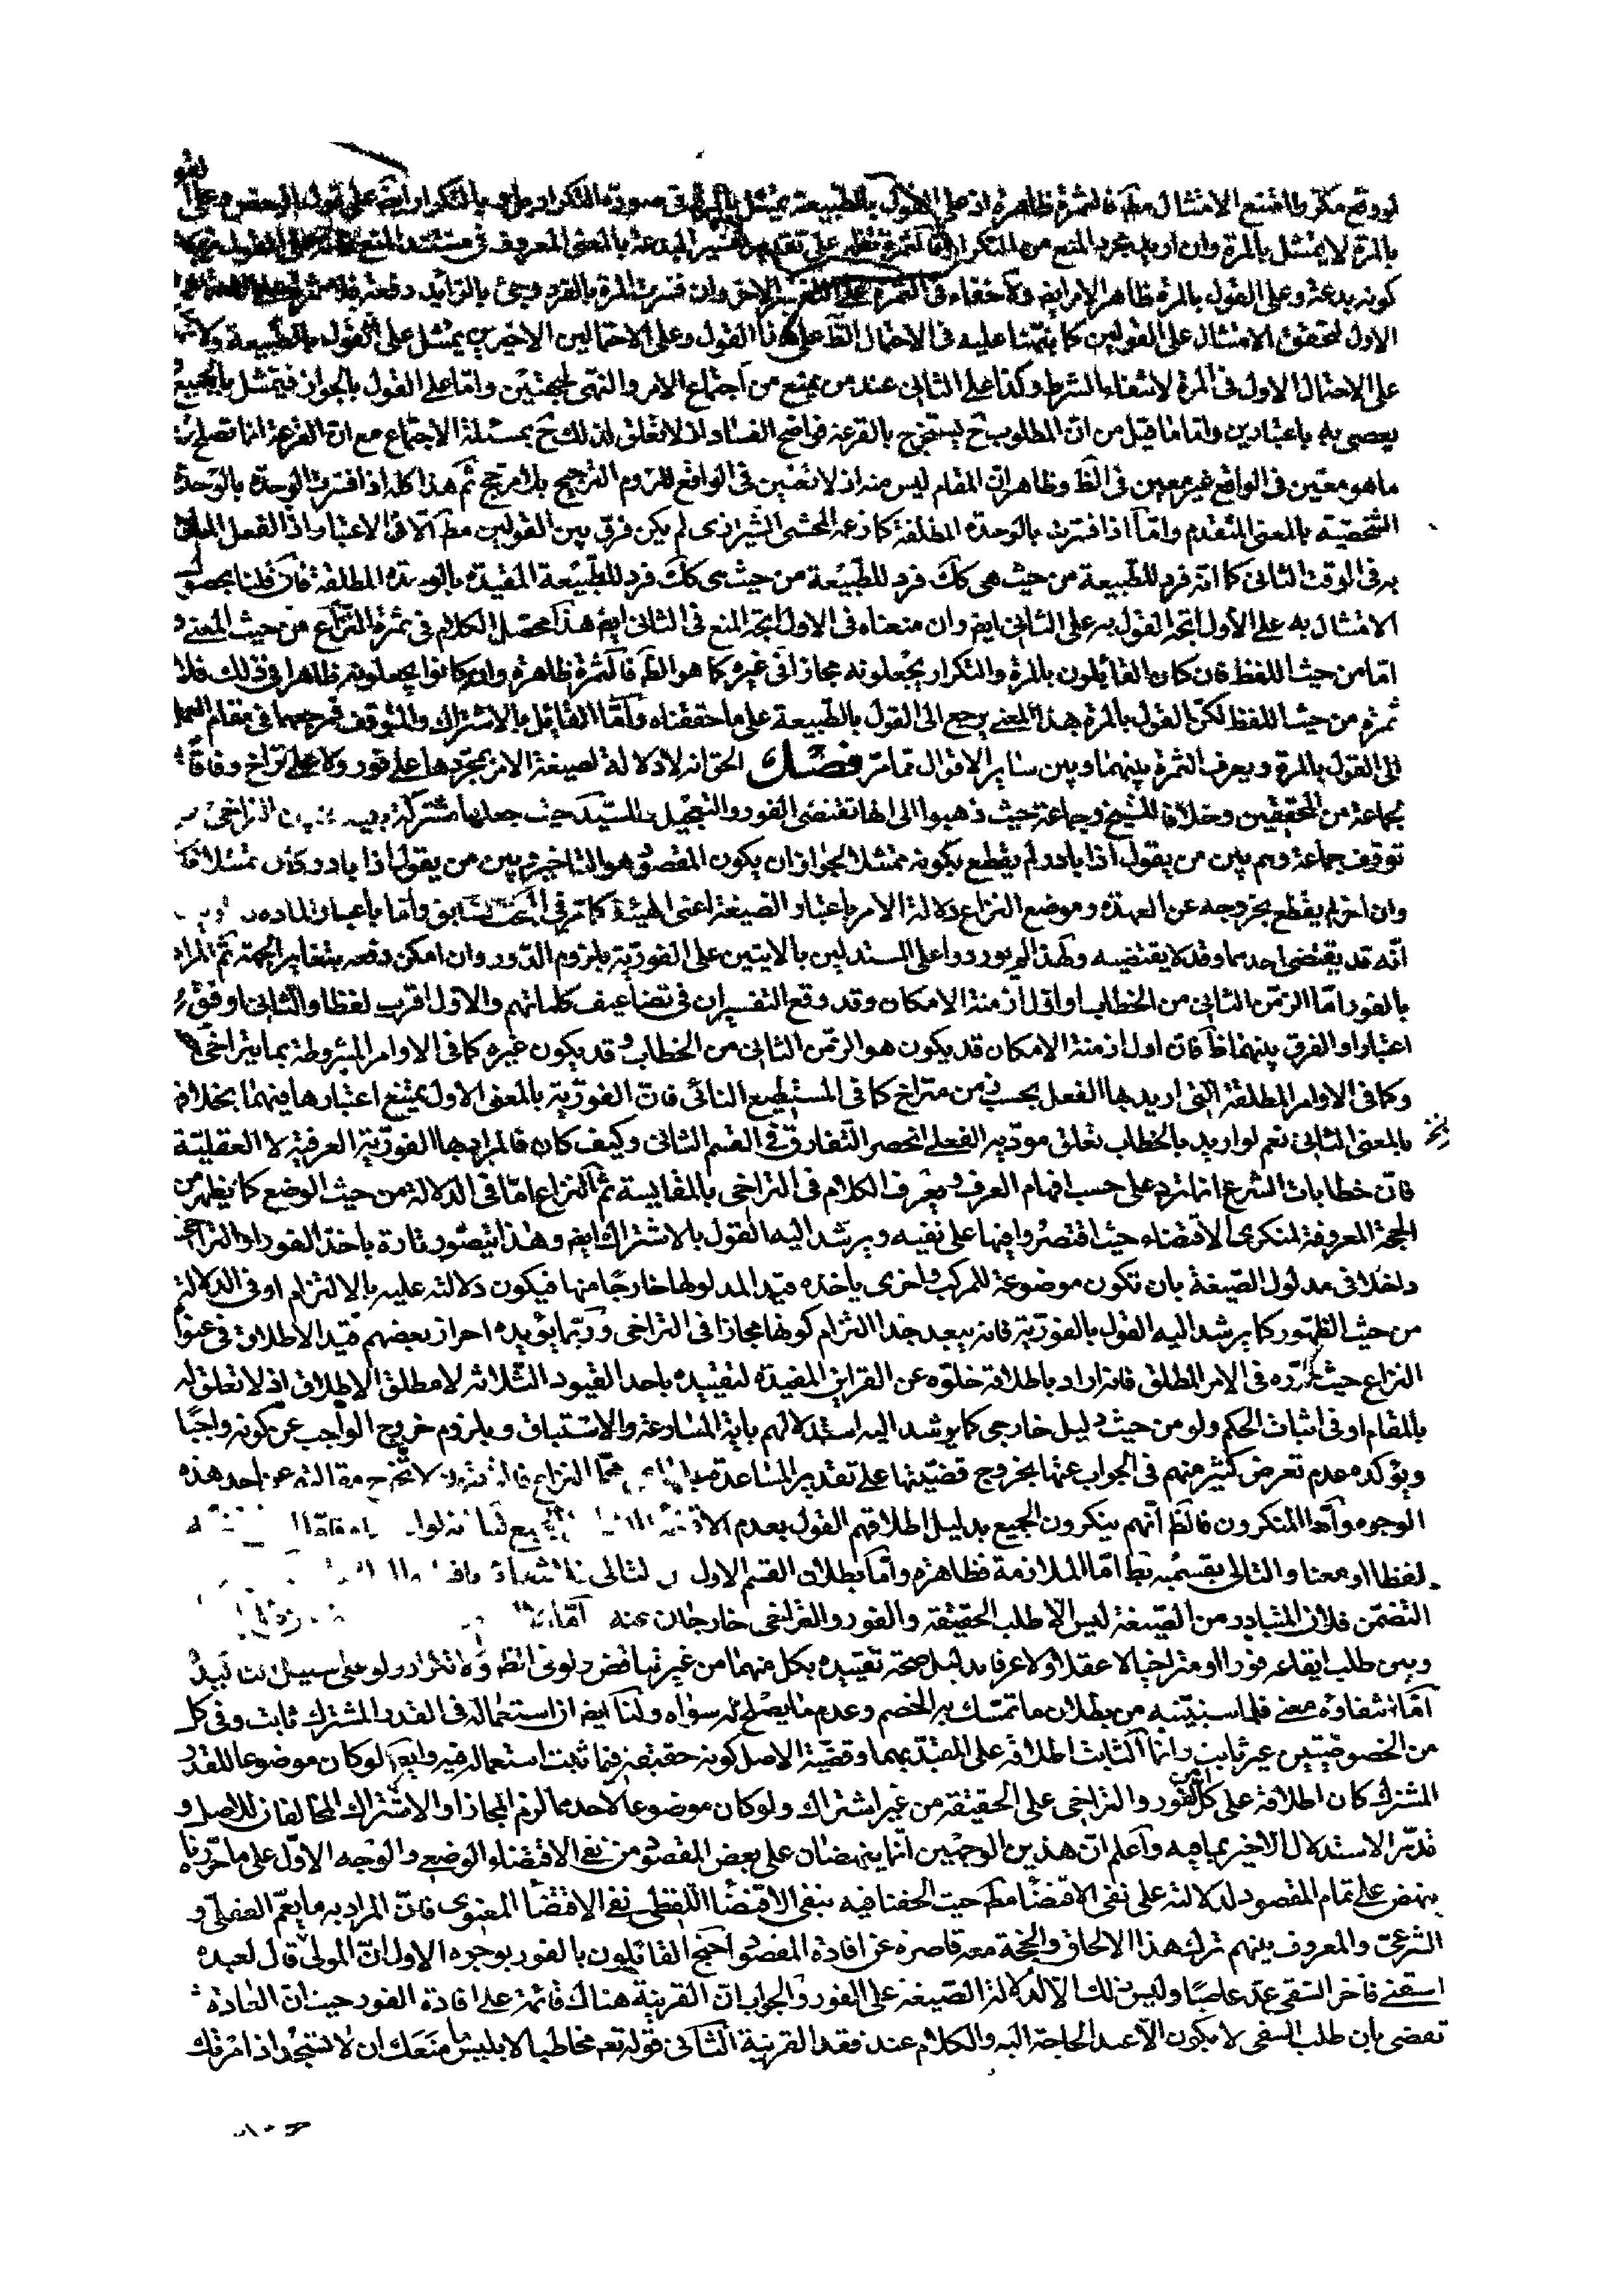 لو وقع مكررا امتنع الامتثال مط فالثمرة ظاهرة اذ على القول بالطبيعة يمتثل بالمرة فى صورة التكرار
بالمرة لا يمتثل بالمرة وان اريد مجرد المنع من التكرار فالثمرة تظهر على تقدير تفسير البدعة بالمعنى المعروف فى مستند المنع
كونه بدعة وعلى القول بالمرة ظاهر الامر ايض فلا خفاء فى الثمرة على التفسير الاخر وان فسرت المرة بالفرد وجئ بالزايد دفعة فلا ثمرة
الاول لتحقق الامتثال على القولين كما يتمشا عليه فى الاحتمال الظ على هذا القول وعلى الاحتمالين الاخيرين يمتثل على القول بالطبيعة ولا يمتثل
على الاحتمال الاول فى المرة لانتفاء الشرط وكذا على الثانى عند من يمنع من اجتماع الامر والنهى لجهتين واما على القول بالجواز فيمتثل بالجميع
يعصى به باعتبارين واما ما قيل من ان المطلوب ح يستخرج بالقرعة فواضح الفساد اذ لا تعلق لذلك ح بمسئلة الاجتماع مع ان القرعة انما تصلح
ما هو معين فى الواقع غير معين فى الظ وظاهر ان المقام ليس منه اذ لا تعين فى الواقع للزوم الترجيح بلا مرجح ثم هذا كله اذا فسرت الوحدة بالوحدة
الشخصية بالمعنى المتقدم واما اذا فسرت بالوحدة المطلقة كما زعمه المحشى الشيرازى لم يكن فرق بين القولين مط الا فى الاعتبار اذ الفعل الماتى
به فى الوقت الثانى كما انه فرد للطبيعة من حيث هى كك فرد للطبيعة من حيث هى كك فرد للطبيعة المقيدة بالوحدة المطلقة فان قلنا بحصول
الامتثال به على الأول اتجه القول به على الثانى ايض وان منعناه فى الاول اتجه المنع فى الثانى ايض هذا محصل الكلام فى ثمرة النزاع من حيث المعنى و
اما من حيث اللفظ فان كان القايلون بالمرة والتكرار يجعلونه مجازا فى غيره كما هو الظ فالثمرة ظاهرة وان كانوا يجعلونه ظاهرا فى ذلك فلا
ثمرة من حيث اللفظ لكن القول بالمرة بهذا المعنى يرجع الى القول بالطبيعة على ما حققناه وأما القايل بالاشتراك والتوقف فمرجعهما فى مقام العمل
الى القول بالمرة ويعرف الثمرة بينهما وبين ساير الاقوال مما مر فصل الحق انه لا دلالة لصيغة الامر بمجردها على فور ولا على تراخ وفاقا
لجماعة من المحققين وخلافا للشيخ وجماعة حيث ذهبوا الى انها تقتضى الفور والتعجيل وللسيد حيث جعلها مشتركة بينه وبين التراخى
توقف جماعة وهم بين من يقول اذا بادر لم يقطع بكونه ممتثلا لجواز ان يكون المقصود هو التاخير وبين من يقول اذا بادر كان ممتثلا قطعا
وان اخر لم يقطع بخروجه عن العهدة وموضع النزاع دلالة الامر باعتبار الصيغة اعنى الهيئة كما مر فى البحث السابق واما باعتبار المادة
انه قد يقتضى احدهما وقد لا يقتضيه ولهذا لم يوردوا على المستدلين بالايتين على الفورية بلزوم الدور وان امكن دفعه بتغاير الجهة ثم المراد
بالفور اما الزمن الثانى من الخطاب او اول ازمنة الامكان وقد وقع التفسيران فى تضاعيف كلماتهم والاول اقرب لفظا والثانى اوفق
اعتبارا والفرق بينهما ظ فان اول ازمنة الامكان قد يكون هو الزمن الثانى من الخطاب وقد يكون غيره كما فى الاوامر المشروطة بما يتراخى
وكما فى الاوامر المطلقة التى اريد بها الفعل بحسب زمن متراخ كما فى المستطيع النائى فان الفورية بالمعنى الاول يمتنع اعتبارها فيهما بخلافه
بالمعنى الثانى نعم لو اريد بالخطاب تعلق موديه الفعلى انحصر التفارق فى القسم الثانى وكيف كان فالمراد بها الفورية العرفية لا العقلية
فان خطابات الشرع انما ترد على حسب افهام العرف ويعرف الكلام فى التراخى بالمقايسة ثم النزاع اما فى الدلالة من حيث الوضع كما يظهر من
الحجة المعروفة لمنكرى الاقتضاء حيث اقتصروا فيها على نفيه ويرشد اليه القول بالاشتراك ايض وهذا يتصور تارة باخذ الفور او التراخى
داخلا فى مدلول الصيغة بان تكون موضوعة للمركب واخرى باخذه قيدا لمدلولها خارجا منها فيكون دلالته عليه بالالتزام او فى الدلالة
من حيث الظهور كما يرشد اليه القول بالفورية فانه يبعد جدا التزام كونها مجازا فى التراخى وربما يؤيده احراز بعضهم قيد الاطلاق فى عنوان
النزاع حيث حرره فى الامر المطلق فانه اراد باطلاقه خلوه عن القراين المفيدة لتقييده باحد القيود الثلاثة لا مطلق الاطلاق اذ لا تعلق له
بالمقام او فى اثبات الحكم ولو من حيث دليل خارجى كما يرشد اليه استدلالهم باية المسارعة والاستباق وبلزوم خروج الواجب عن كونه واجبا
ويؤكده عدم تعرض كثير منهم فى الجواب عنها بخروج قضيتها على تقدير المساعدة عليها عن محل النزاع لا تخرج مقالته عن احد هذه
الوجوه وأما المنكرون فالظ أنهم ينكرون الجميع بدليل اطلاقهم القول بعدم
لفظا او معنا والتالى بقسميه بط اما الملازمة فظاهرة وأما بطلان القسم الاول
التضمن فلان المتبادر من الصيغة ليس الا طلب الحقيقة والفور والتراخى خارجان عنه
وبين طلب ايقاعه فورا او متراخيا لا عقلا ولا عرفا بدليل صحة تقييده بكل منهما من غير تناقض ولو فى الظ ولا تكرار ولو على سبيل التاكيد
أما انتفاؤه معنى فلما سنبينه من بطلان ما تمسك به الخصم وعدم ما يصلح له سواه ولنا ايض ان استعماله فى القدر المشترك ثابت وفى كل
من الخصوصيتين غير ثابت وانما الثابت اطلاقه على المقيد بهما وقضية الاصل كونه حقيقة فيما ثبت استعماله فيه وايض لو كان موضوعا للقدر
المشترك كان اطلاقه على كل من الفور والتراخى على الحقيقة من غير اشتراك ولو كان موضوعا لاحدهما لزم المجاز او الاشتراك المخالفان للاصل و
قد مر الاستدلال الاخير بما فيه وأعلم ان هذين الوجهين انما ينهضان على بعض المقصود من نفى الاقتضاء الوضعى والوجه الاول على ما حررناه
ينهض على تمام المقصود لدلالته على نفى الاقتضاء مط حيث الحقنا فيه بنفى الاقتضاء اللفظى نفى الاقتضاء المعنوى فان المراد به ما يعم العقلى و
الشرعى والمعروف بينهم ترك هذا الالحاق والحجة معه قاصرة عن افادة المقصود احتج القائلون بالفور بوجوه الاول ان المولى قال لعبده
اسقنى فأخر السقى عد عاصيا وليس ذلك الا لدلالة الصيغة على الفور والجواب ان القرينة هناك قائمة على افادة الفور حيث ان العادة
تقضى بان طلب السقى لا يكون الا عند الحاجة اليه والكلام عند فقد القرينة الثانى قوله تعم مخاطبا لابليس ما منعك ان لا تسجد اذ امرتك